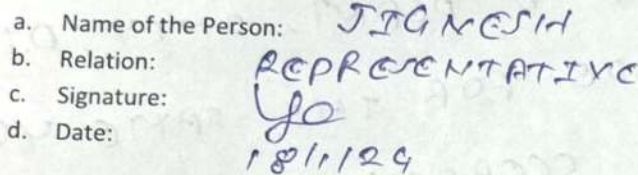 a. Name of the Person: JIGNESH
b. Relation: REPRESENTATIVE
c. Signature:
d. Date: 18/1/24